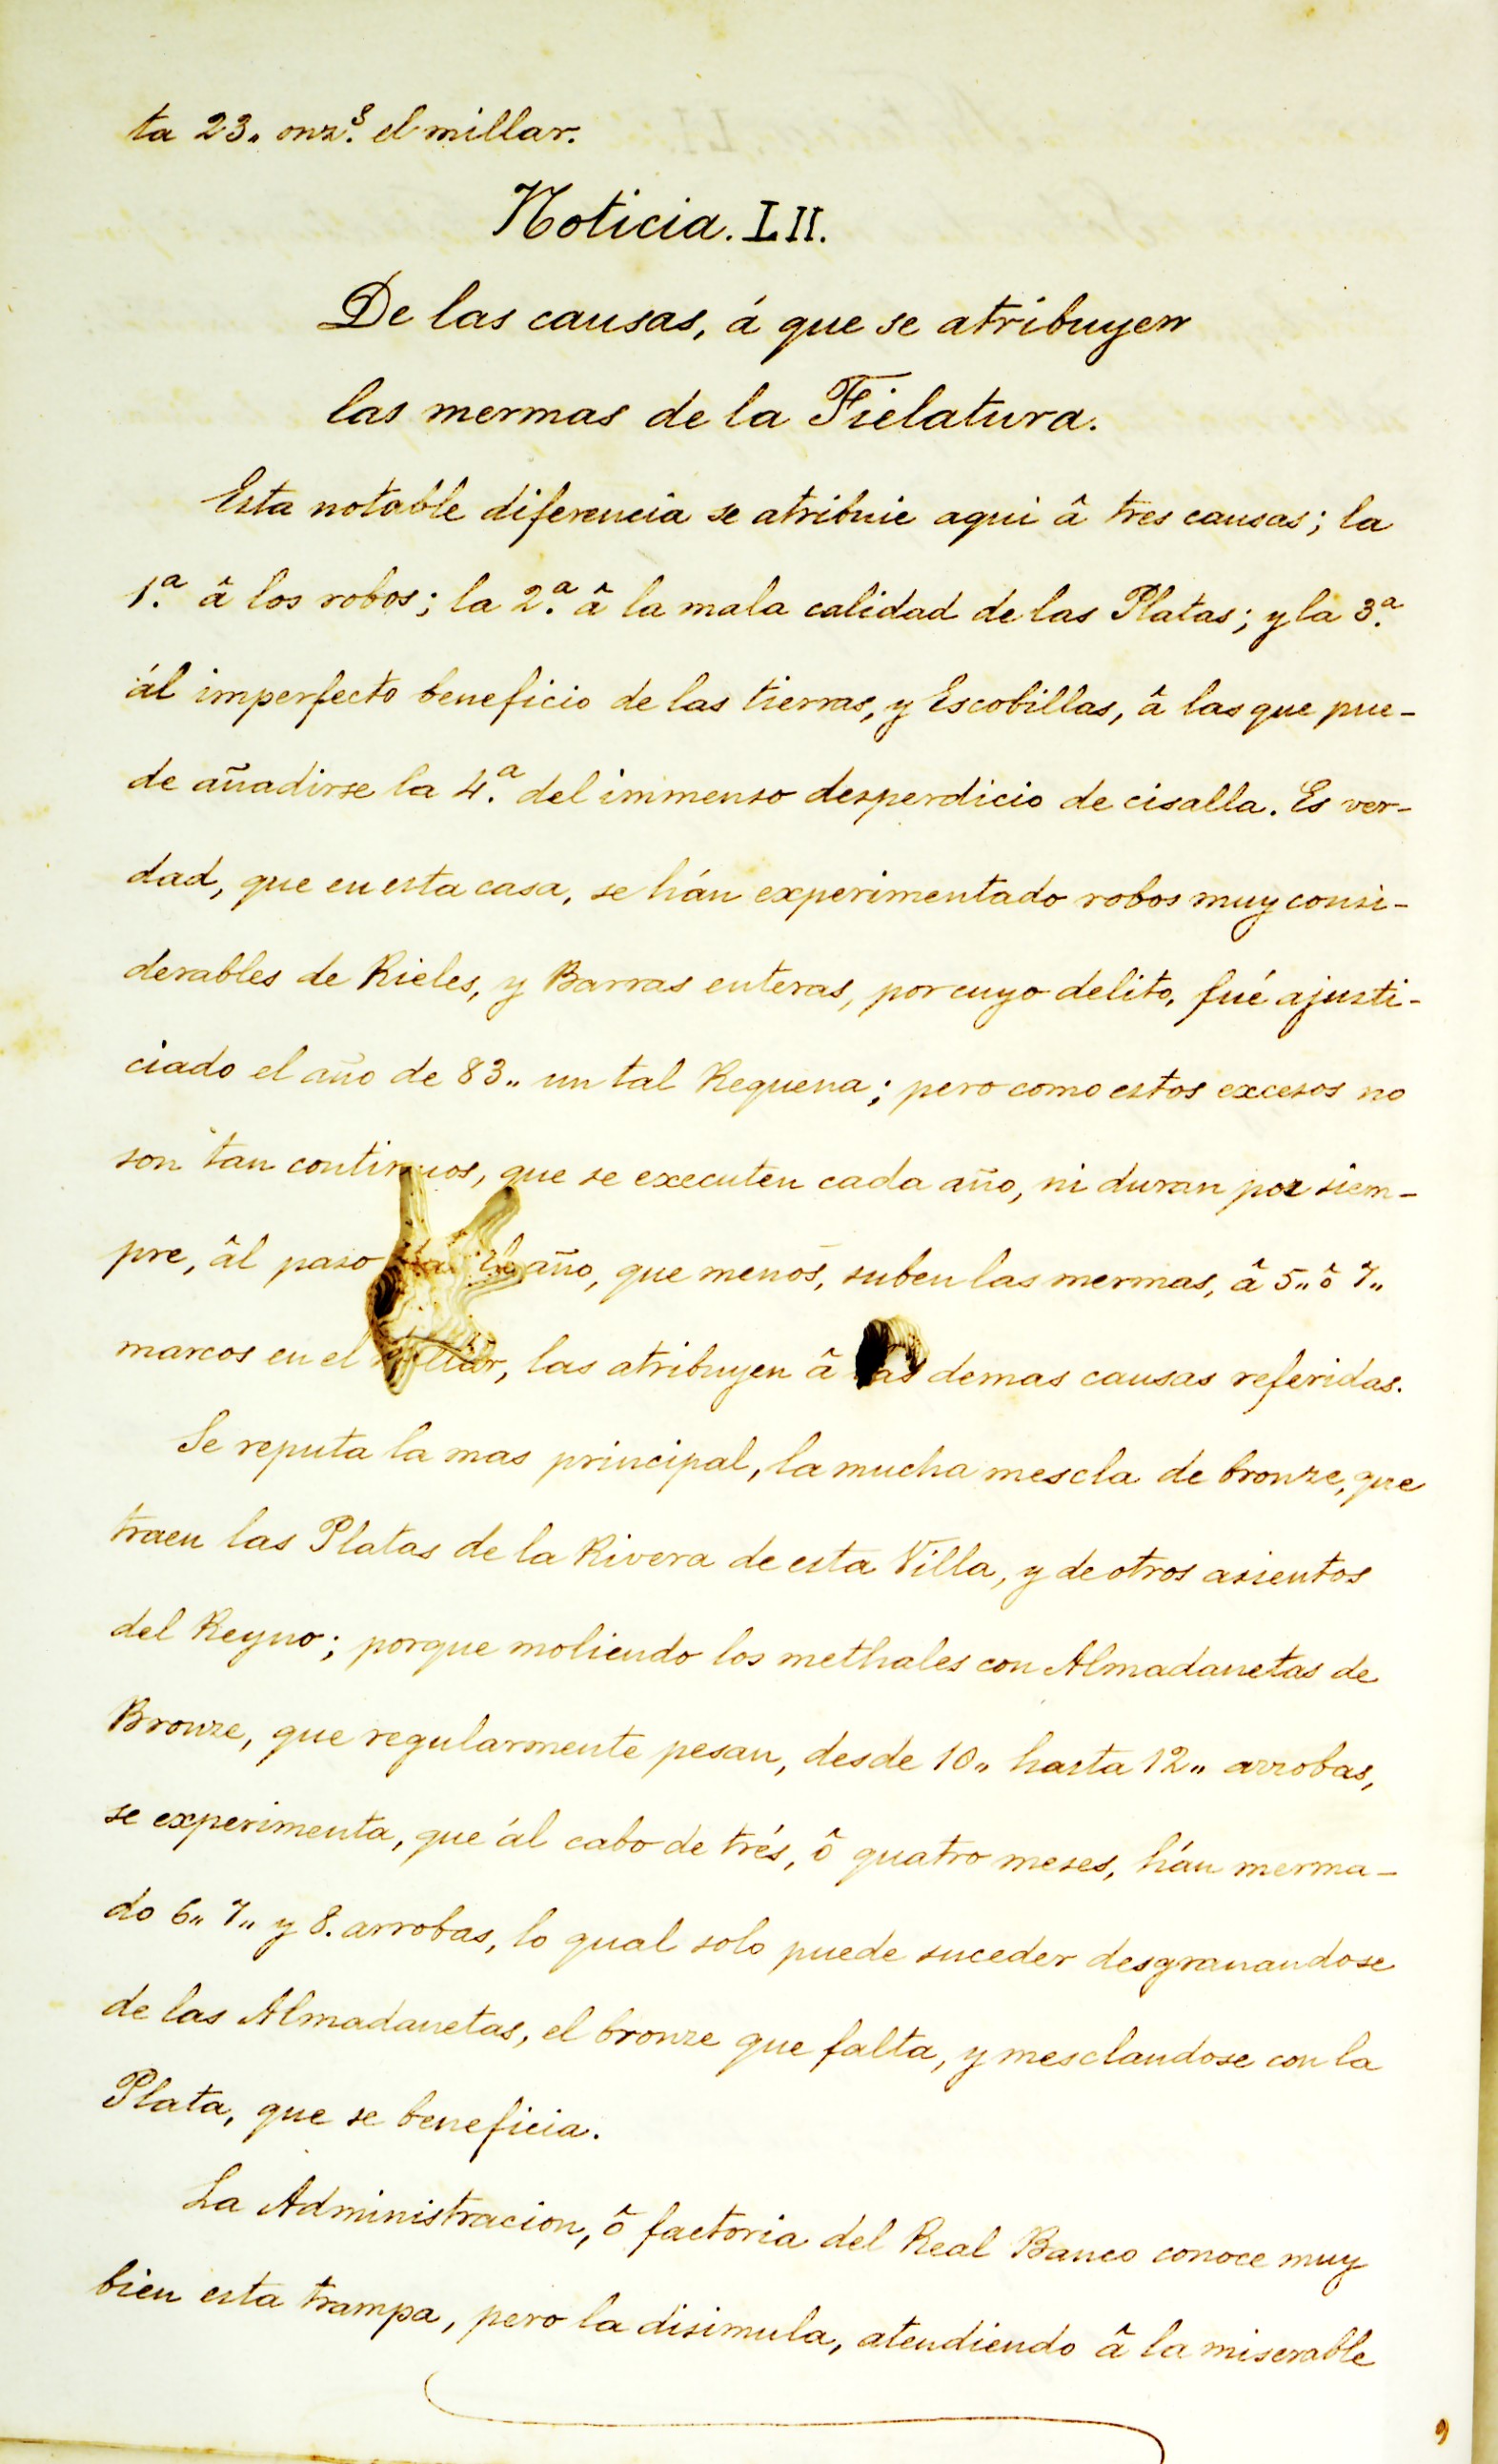 ta 23,, onz.s el millar.
Noticia. LII.
De las causas, á que se atribuyen
las mermas de la Fielatura.
Esta notable diferencia se atribuie aqui â tres causas; la
1.a â los robos; la 2.a â la mala calidad de las Platas; y la 3.a
ál imperfecto beneficio de las tierras, y Escobillas, â las que pue-
de añadirse la 4.a del immenso desperdicio de cisalla. Es ver-
dad, que en esta casa, se hán experimentado robos muy consi-
derables de Rieles, y Barras enteras, por cuyo delito, fué ajusti-
ciado el año de 83,, un tal Requena; pero como estos excesos no
son tan continuos, que se executen cada año, ni duran por siem-
pre, âl paso el año, que menos, suben las mermas, â 5,, ô 7,,
marcos en el millar, las atribuyen â las demas causas referidas.
Se reputa la mas principal, la mucha mescla de bronze, que
traen las Platas de la Rivera de esta Villa, y de otros asientos
del Reyno; porque moliendo los methales con Almadanetas de
Bronze, que regularmente pesan, desde 10,, hasta 12,, arrobas,
se experimenta, que ál cabo de trés, ô quatro meses, hán merma-
do 6,, 7,, y 8. arrobas, lo qual solo puede suceder desgranandose
de las Almadanetas, el bronze que falta, y mesclandose con la
Plata, que se beneficia.
La Administracion, ô factoria del Real Banco conoce muy
bien esta trampa, pero la disimula, atendiendo â la miserable